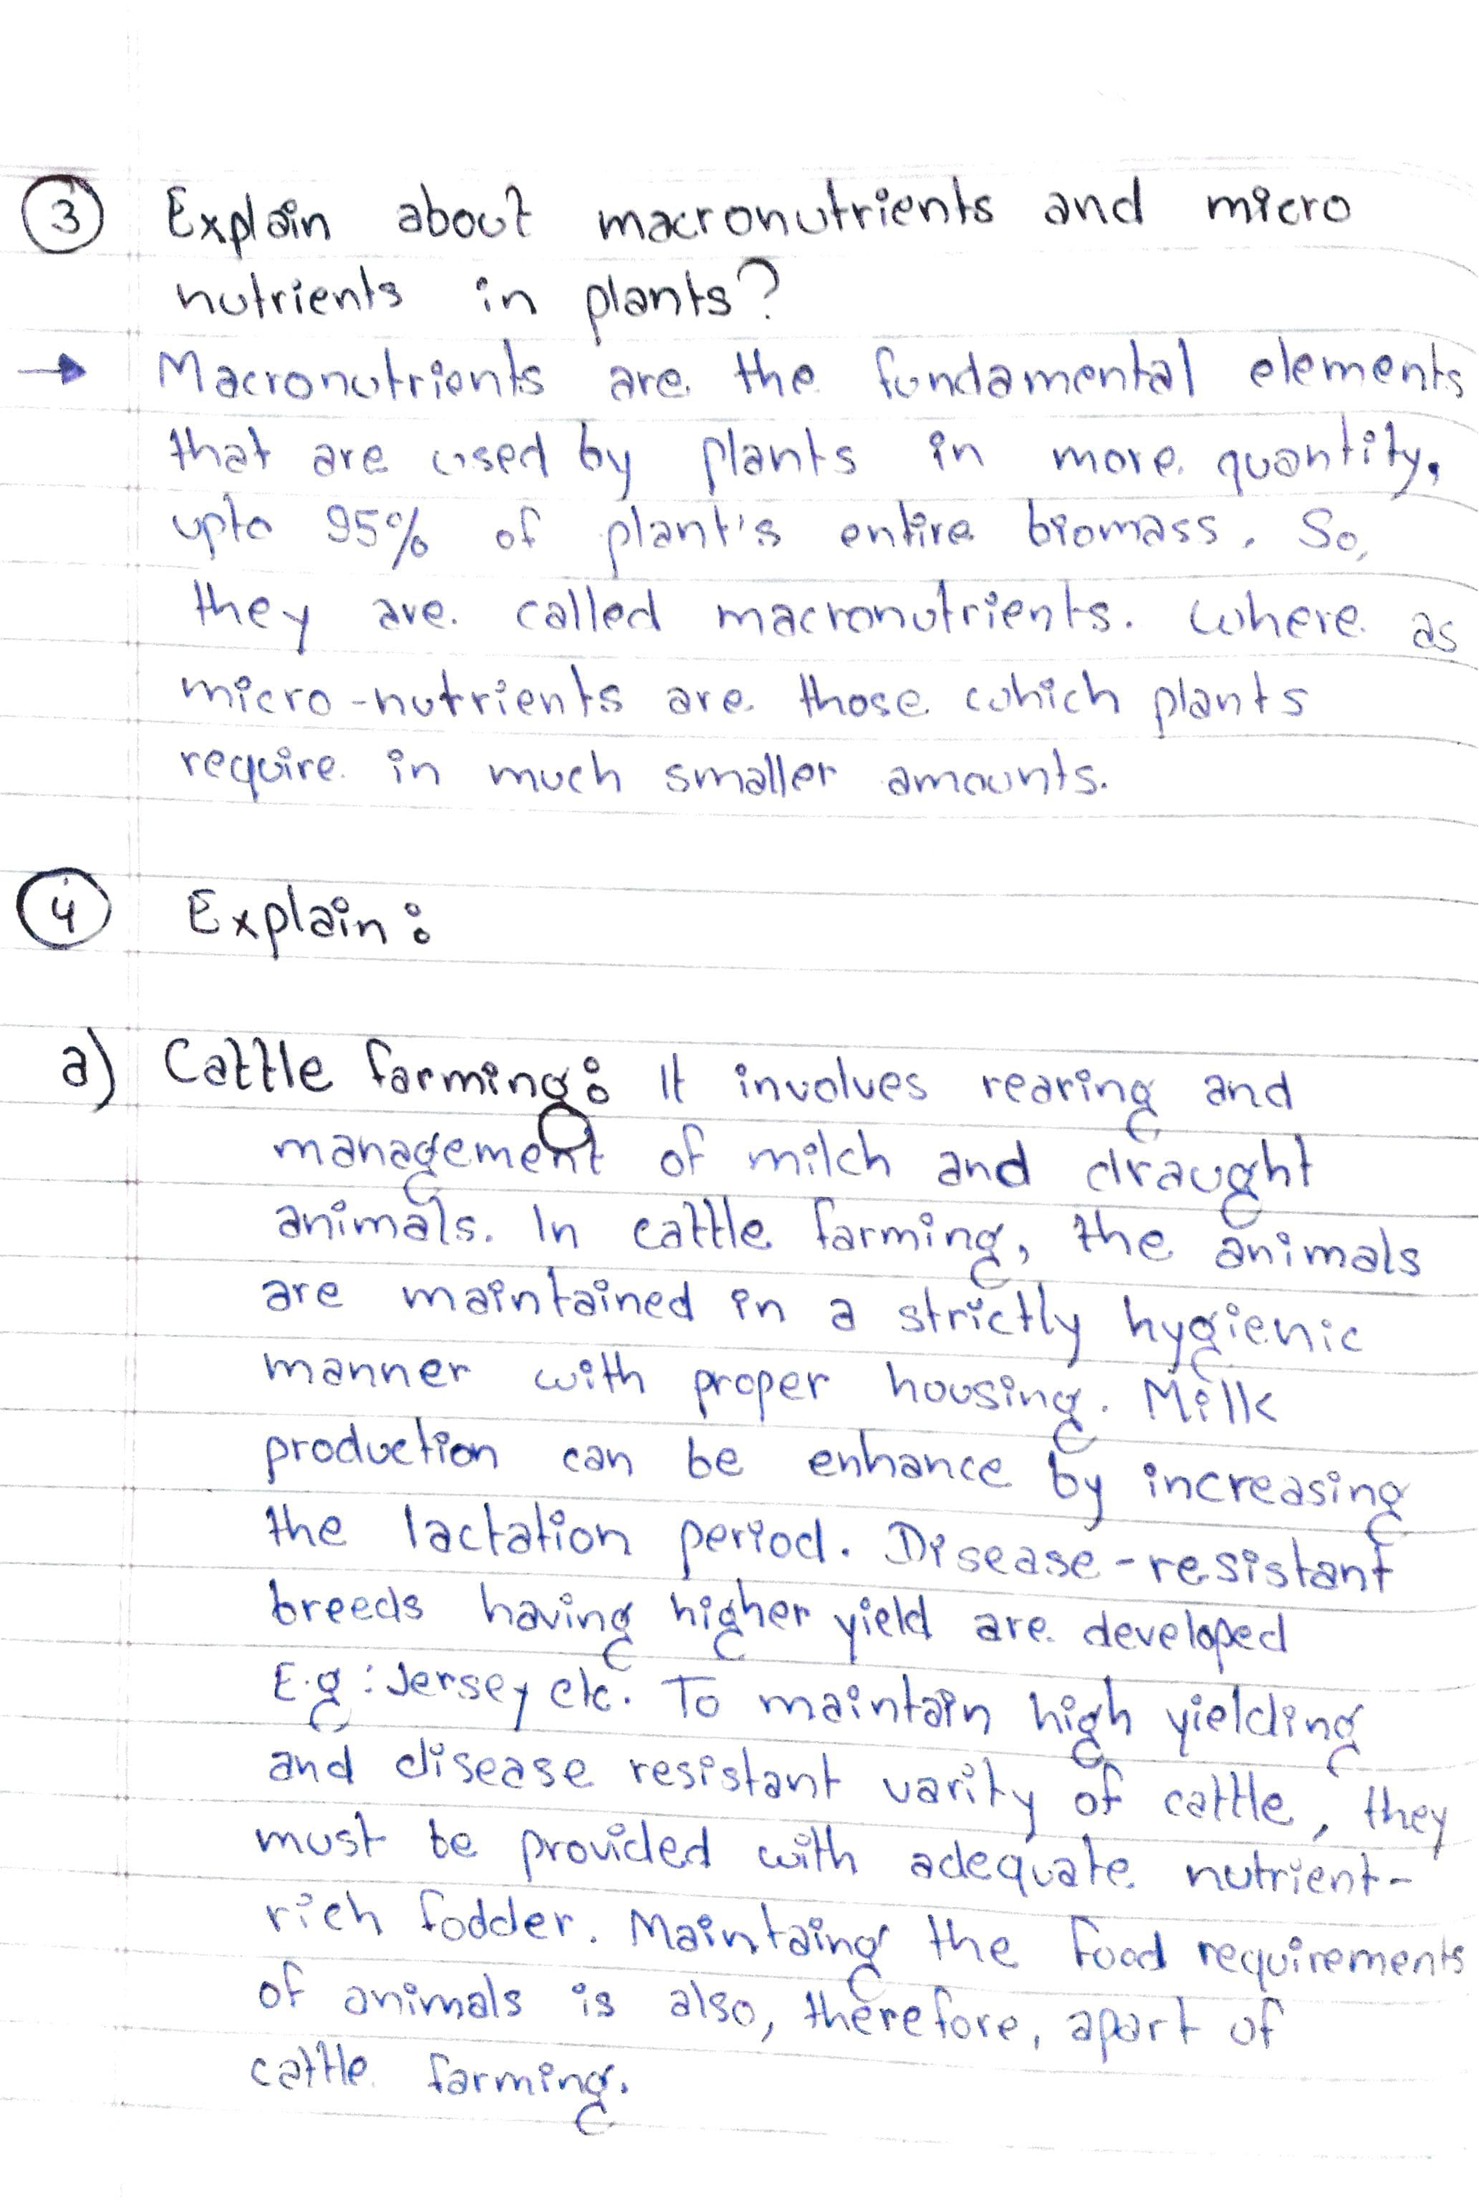 3 Explain about macronutrients and micro
nutrients in plants?
→ Macronutrients are the fundamental elements
that are used by plants in more quantity,
upto 95% of plant's entire biomass. So,
they are called macronutrients. Where as
micro-nutrients are those which plants
require in much smaller amounts.
4 Explain:
a) Cattle farming: It involves rearing and
management of milch and draught
animals. In cattle farming, the animals
are maintained in a strictly hygienic
manner with proper housing. Milk
production can be enhance by increasing
the lactation period. Disease-resistant
breeds having higher yield are developed
E.g: Jersey etc. To maintain high yielding
and disease resistant varity of cattle, they
must be provided with adequate nutrient-
rich fodder. Maintaing the food requirements
of animals is also, therefore, apart of
cattle farming.